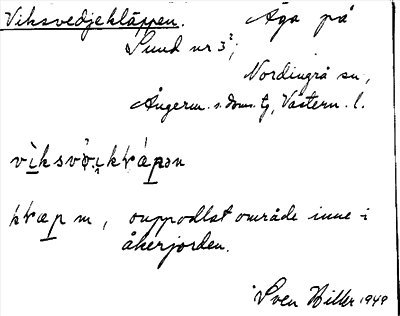 Viksvedjekläppen. Äga på
Sund nr 3²;
Nordingrå sn,
Ångerm. s. doms. tg, Västern. l.
vìksvø̀.i̯kꞎápən
kꞎæp m, ouppodlat område inne i
åkerjorden.
Sven Hiller 1949